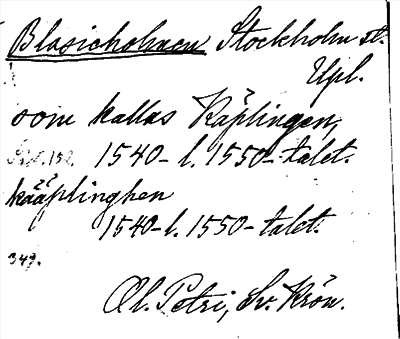 Blasieholmen Stockholm st.
Upl.
som kallas Käplingen,
s. 152. 1540- l. 1550-talet.
kääplinghen
1540- l. 1550-talet.
349.
Ol. Petri, Sv. Krön.